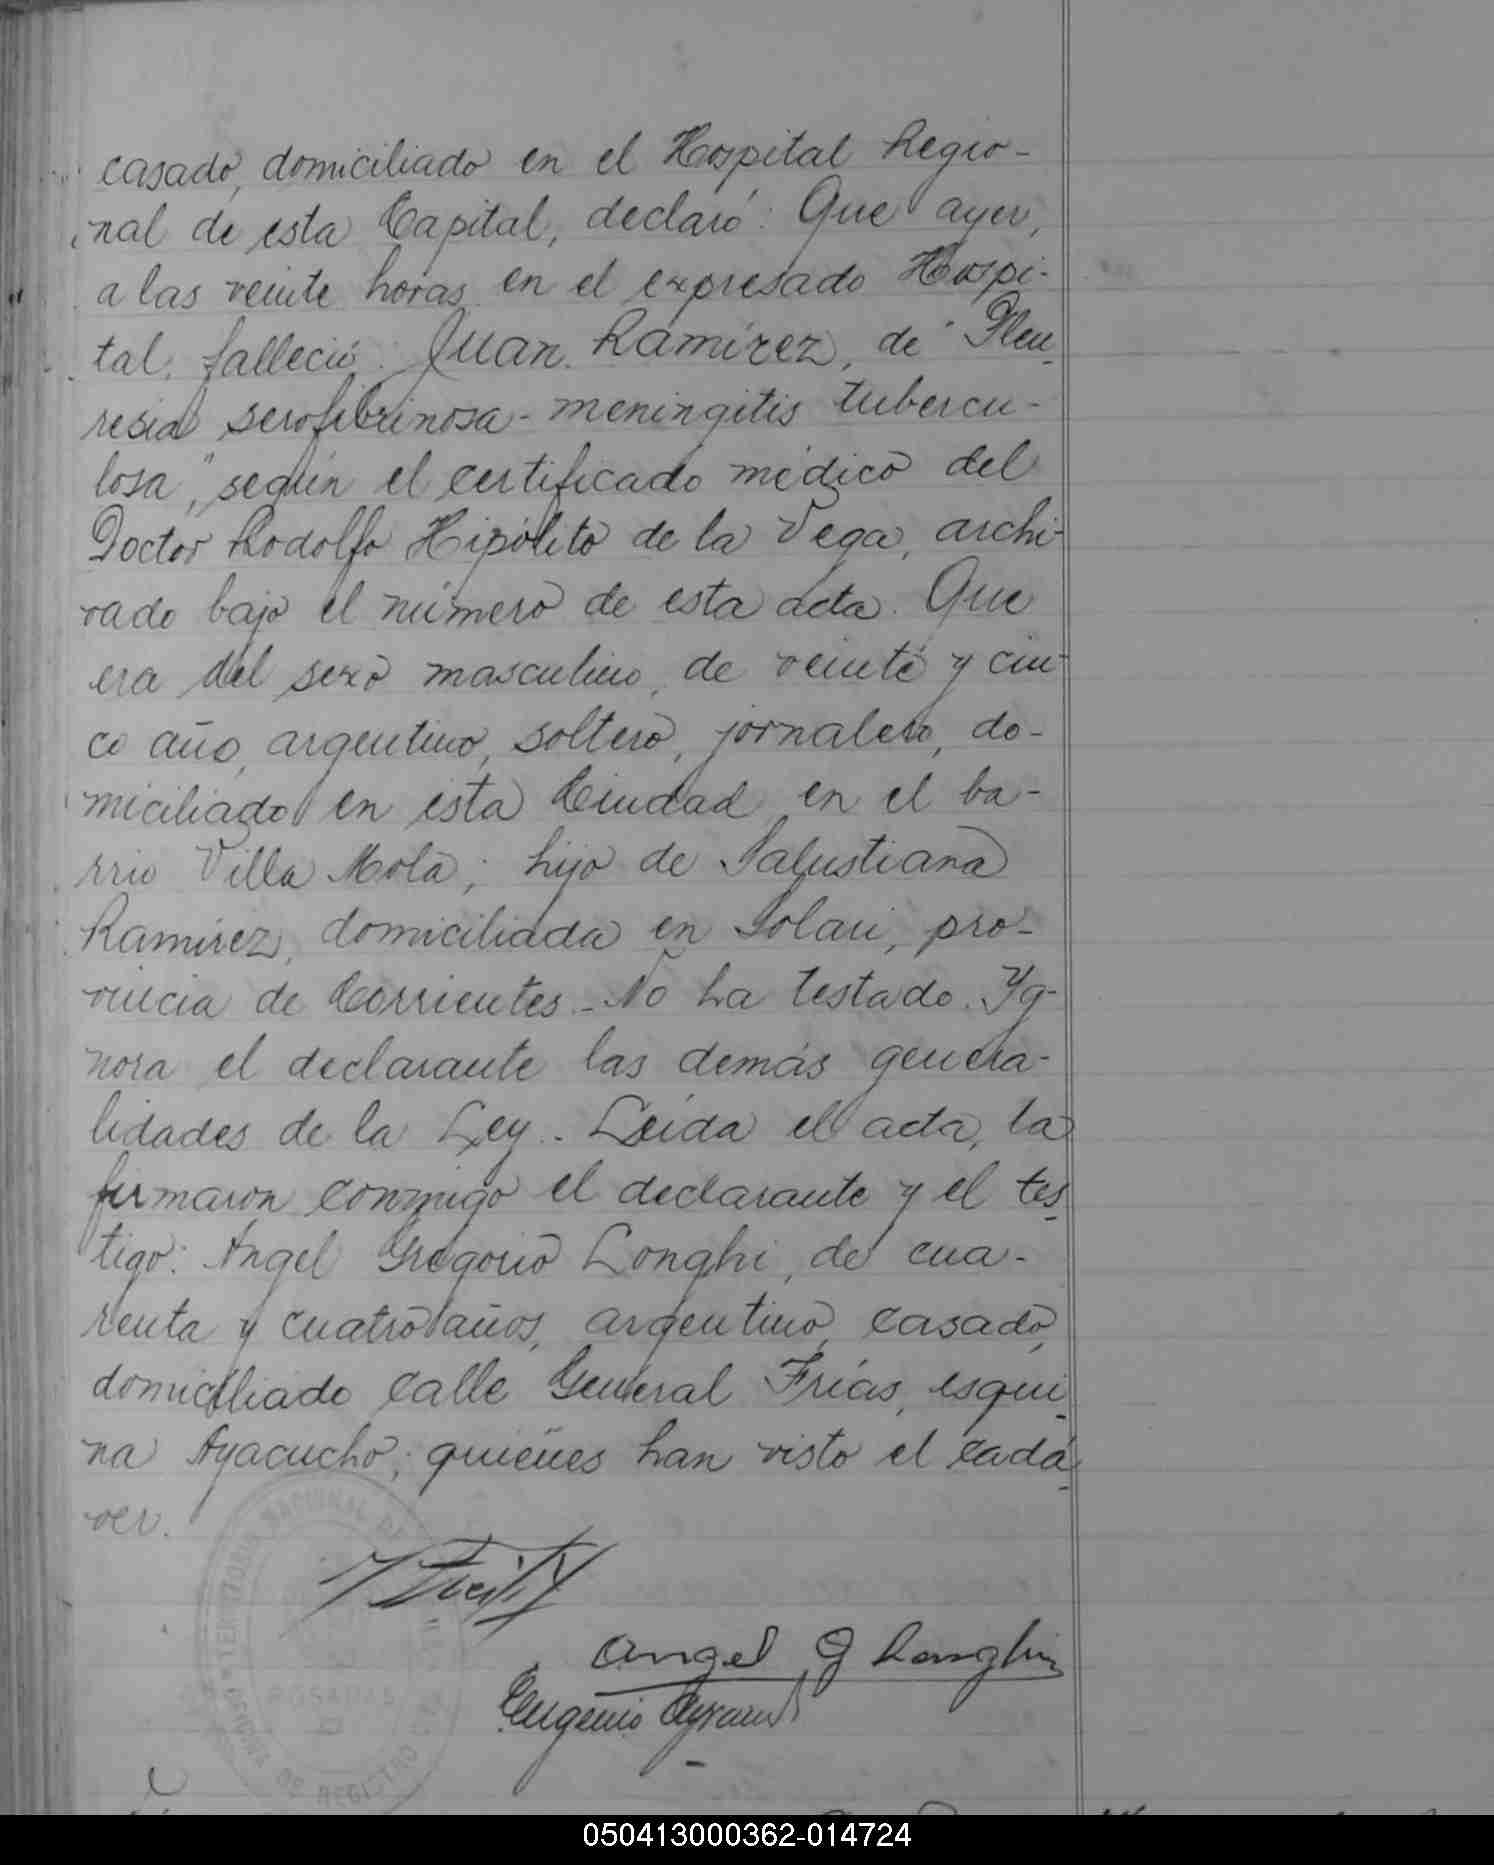 casado, domiciliado en el Hospital Regio-
nal de esta Capital, declaró: Que ayer,
a las veinte horas en el expresado Hospi-
tal, falleció: Juan Ramírez, de "Pleu-
resia serofibrinosa - meningitis tubercu-
losa", según el certificado médico del
Doctor Rodolfo Hipólito de la Vega, archi-
vado bajo el número de esta acta. Que
era del sexo masculino, de veinte y cin-
co año, argentino, soltero, jornalero, do-
miciliado en esta Ciudad en el ba-
rrio Villa Mola; hijo de Salustiana
Ramírez, domiciliada en Solari, pro-
vincia de Corrientes.- No ha testado. Yg-
nora el declarante las demás genera-
lidades de la Ley.- Leída el acta, la
firmaron conmigo el declarante y el tes-
tigo: Angel Gregorio Longhi, de cua-
renta y cuatro años, argentino, casado,
domiciliado calle General Frías, esqui-
na Ayacucho; quienes han visto el cadá-
ver.
TERRITORIO NACIONAL DE
POSADAS
DE REGISTRO
Angel G Longhi
Eugenio
050413000362-014724